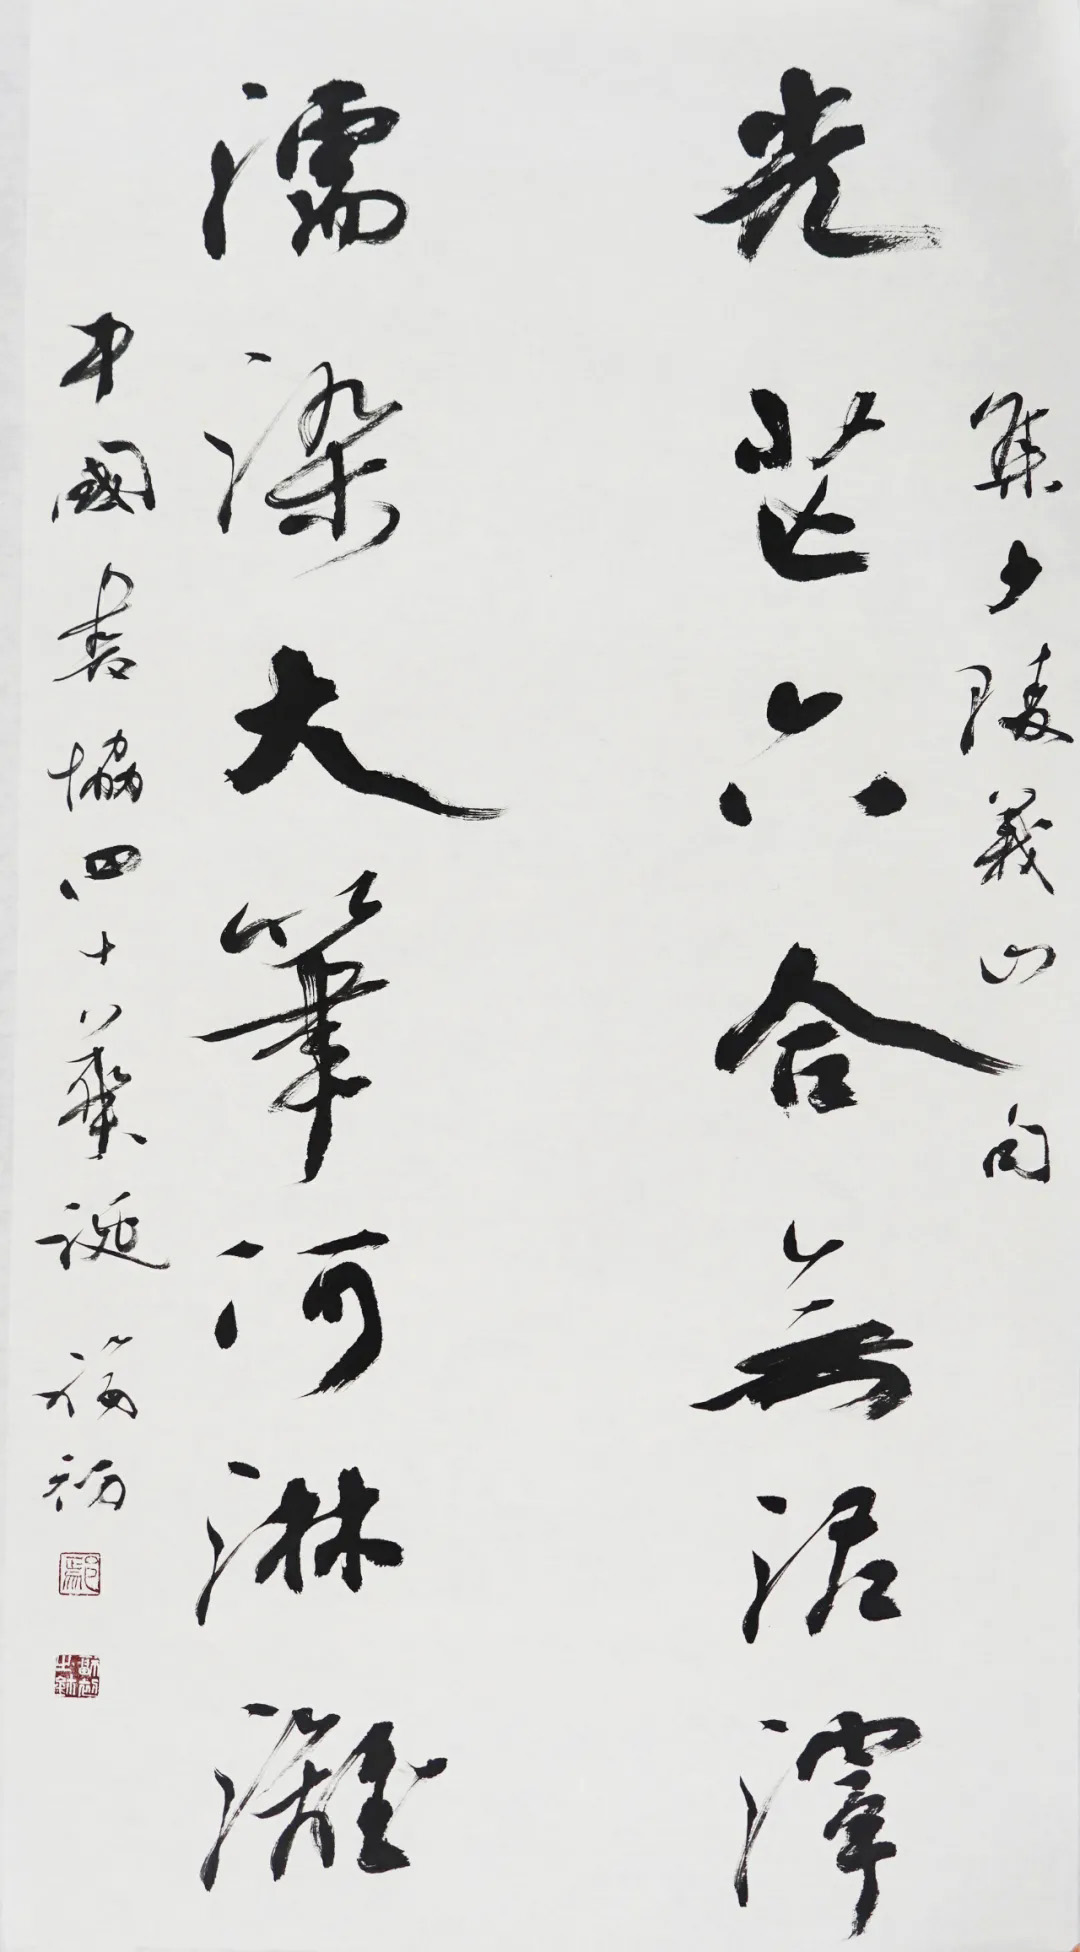 集少陵義山句
光芒六合無泥滓
濡染大筆何淋灕
中國書協四十華誕 福初
鄢